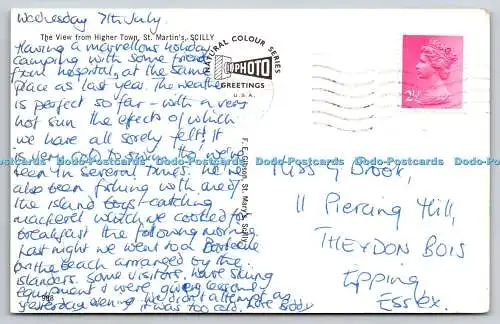 Wednesday 7th July.
The View from Higher Town, St. Martin's, SCILLY
Having a marvellous holiday
camping with some friends
from hospital, at the same
place as last year. The weather
is perfect so far - with a very
hot sun the effects of which
we have all sorely felt! It
is very cold to swim tho' we've
been in several times. We've
also been fishing with one of
the island boys - catching
mackerel which we cooked for
breakfast the following morning.
Last night we went to a Barbecue
on the beach arranged by the
islanders. Some visitors have skiing
equipment & were giving lessons
yesterday evening. We didn't attempt as
it was too cold. Love
988
NATURAL COLOUR SERIES
PHOTO
GREETINGS
U.S.A.
F. E. Gibson, St. Mary's, Scilly
2½
Miss G Brook,
11 Piercing Hill,
THEYDON BOIS
Epping
Essex.
Dodo-Postcards Dodo-Postcards Dodo-Postcards Dodo-Postcards Dodo-Postcards Dodo-Postcards